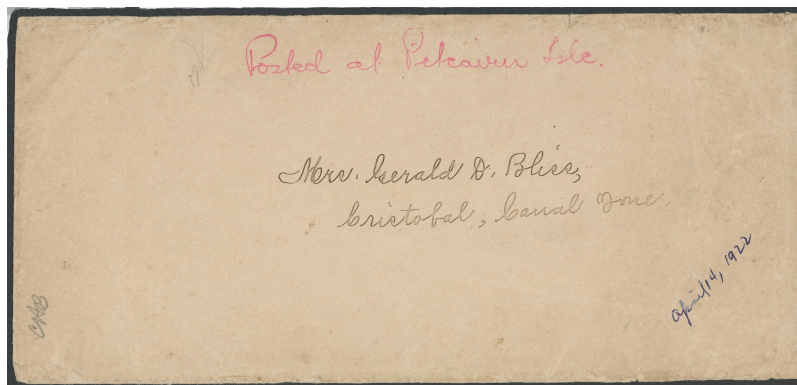 Posted at Pitcairn Isle.
Mrs. Gerald D. Bliss,
Cristobal, Canal Zone.
April 14, 1922